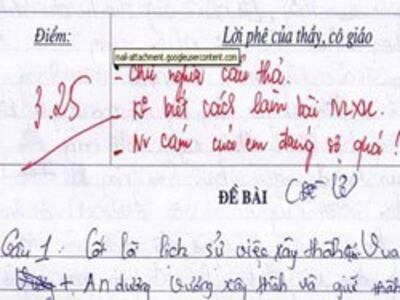 Điểm:
Lời phê của thầy, cô giáo
mail-attachment.googleusercontent.com
3.25
- Chữ nghĩa cẩu thả
- biết cách làm bài NLXH
- cảm của em đáng sợ quá!
ĐỀ BÀI
Câu 1. Cốt lõi lịch sử việc xây thành Vua
+ An dương vương xây thành và giữ thành